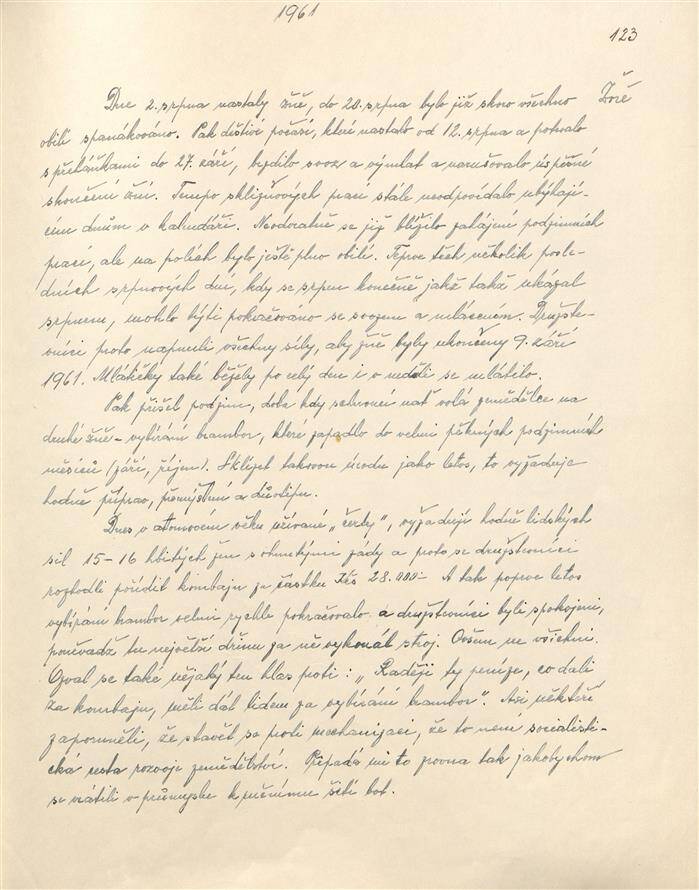 1961
123
Žně
Dne 2. srpna nastaly žně, do 20. srpna bylo již skoro všechno
obilí spanákováno. Pak deštivé počasí, které nastalo od 12. srpna a potrvalo
s přeháňkami do 27. září, brzdilo svoz a výmlat a narušovalo úspěšné
skončení žní. Tempo sklizňových prací stále neodpovídalo ubýhají-
cím dnům v kalendáři. Neodvratně se již blížilo zahájení podzimních
prací, ale na polích bylo ještě plno obilí. Teprve těch několik posle-
dních srpnových dní, kdy se srpen konečně jakž takž ukázal
srpnem, mohlo býti pokračováno se svozem a mlácením. Družste-
vníci proto napnuli všechny síly, aby žně byly ukončeny 9. září
1961. Mlátičky také běžely po celý den i v neděli se mlátilo.
Pak přišel podzim, doba kdy sežloutlá nať volá zemědělce na
druhé žně - vybírání brambor, které zapadlo do velmi pěkných podzimních
měsíců (září, říjen). Sklízet takovou úrodu jako letos, to vyžaduje
hodně příprav, přemýšlení a důvtipu.
Dnes v atomovém věku užívané „čerty", vyžadují hodně lidských
sil 15-16 hbitých žen s ohnutými zády a proto se družstevníci
rozhodli pořídit kombajn za částku Kčs 28.000- A tak poprve letos
vybírání brambor velmi rychle pokračovalo a družstevníci byli spokojeni,
poněvadž tu největší dřinu za ně vykonal stroj. Ovšem ne všichni.
Ozval se také nějaký ten hlas proti: „Raději ty peníze, co dali
za kombajn, měli dát lidem za vybírání brambor". Asi někteří
zapomněli, že stavět se proti mechanizaci, že to není socialisti-
cká cesta rozvoje zemědělství. Připadá mi to zrovna tak jakobychom
se vrátili v průmyslu k ručnímu šití bot.